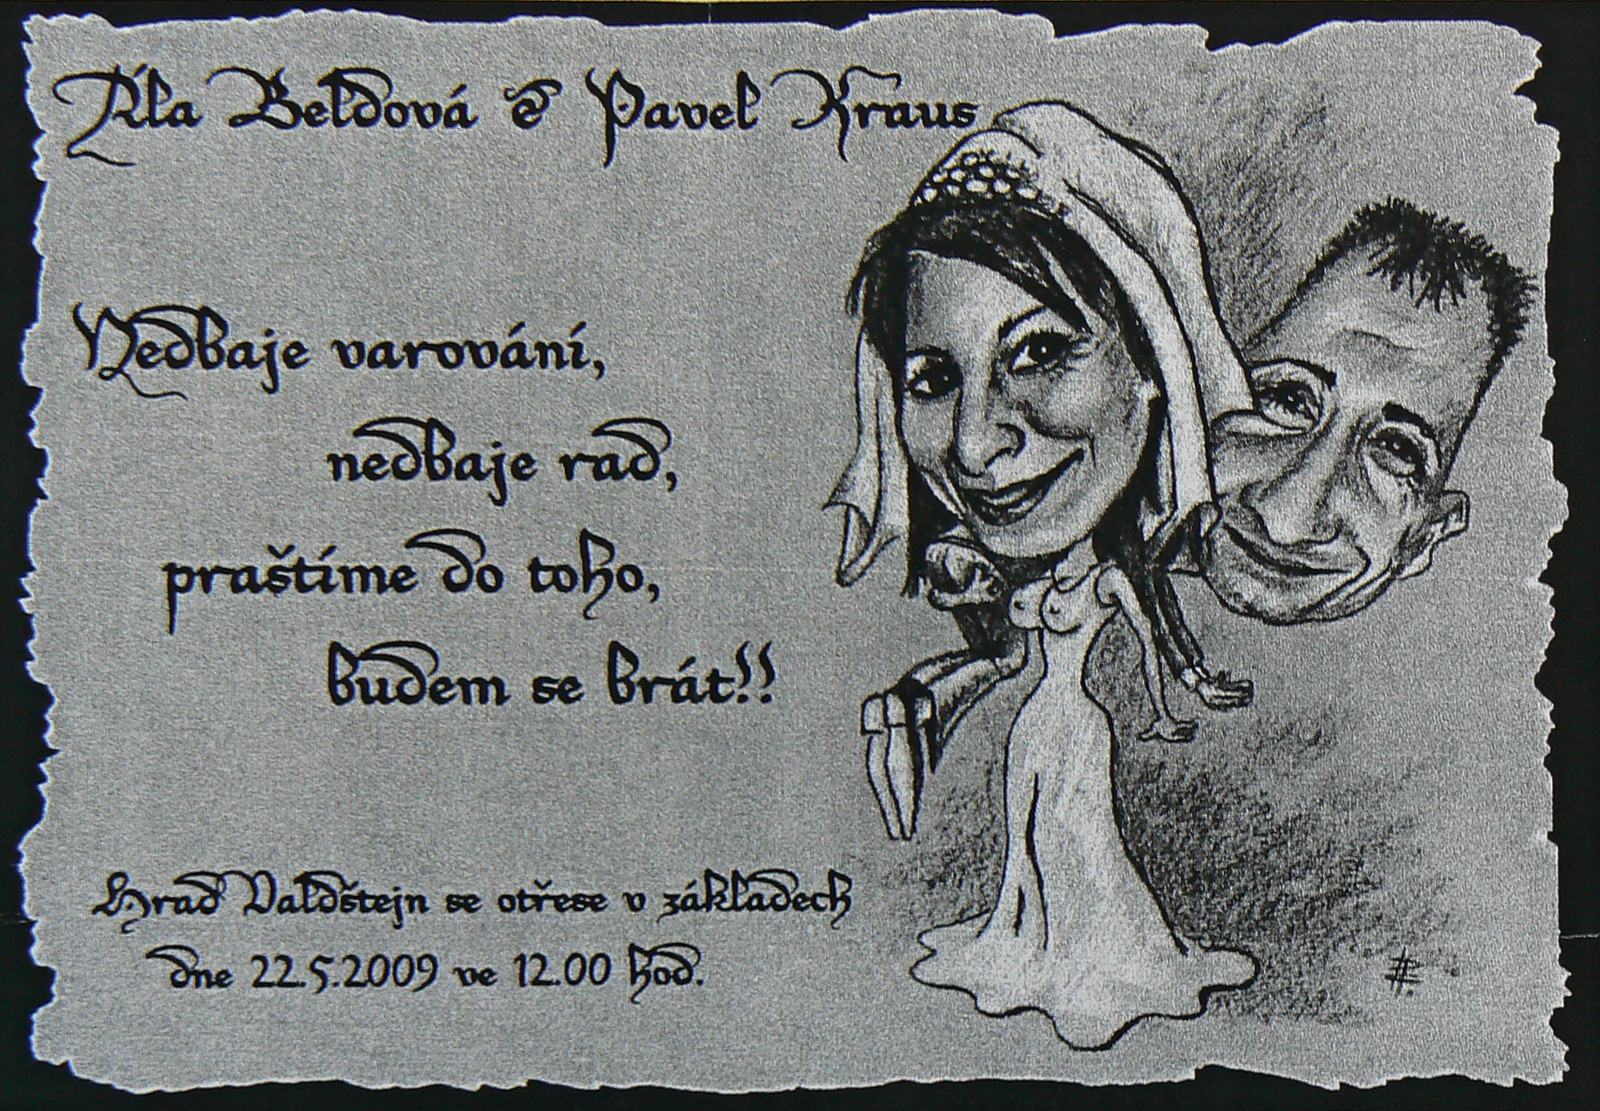 Ála Beldová & Pavel Kraus
Nedbaje varování,
nedbaje rad,
praštíme do toho,
budem se brát!!
Hrad Valdštejn se otřese v základech
dne 22.5.2009 ve 12.00 hod.